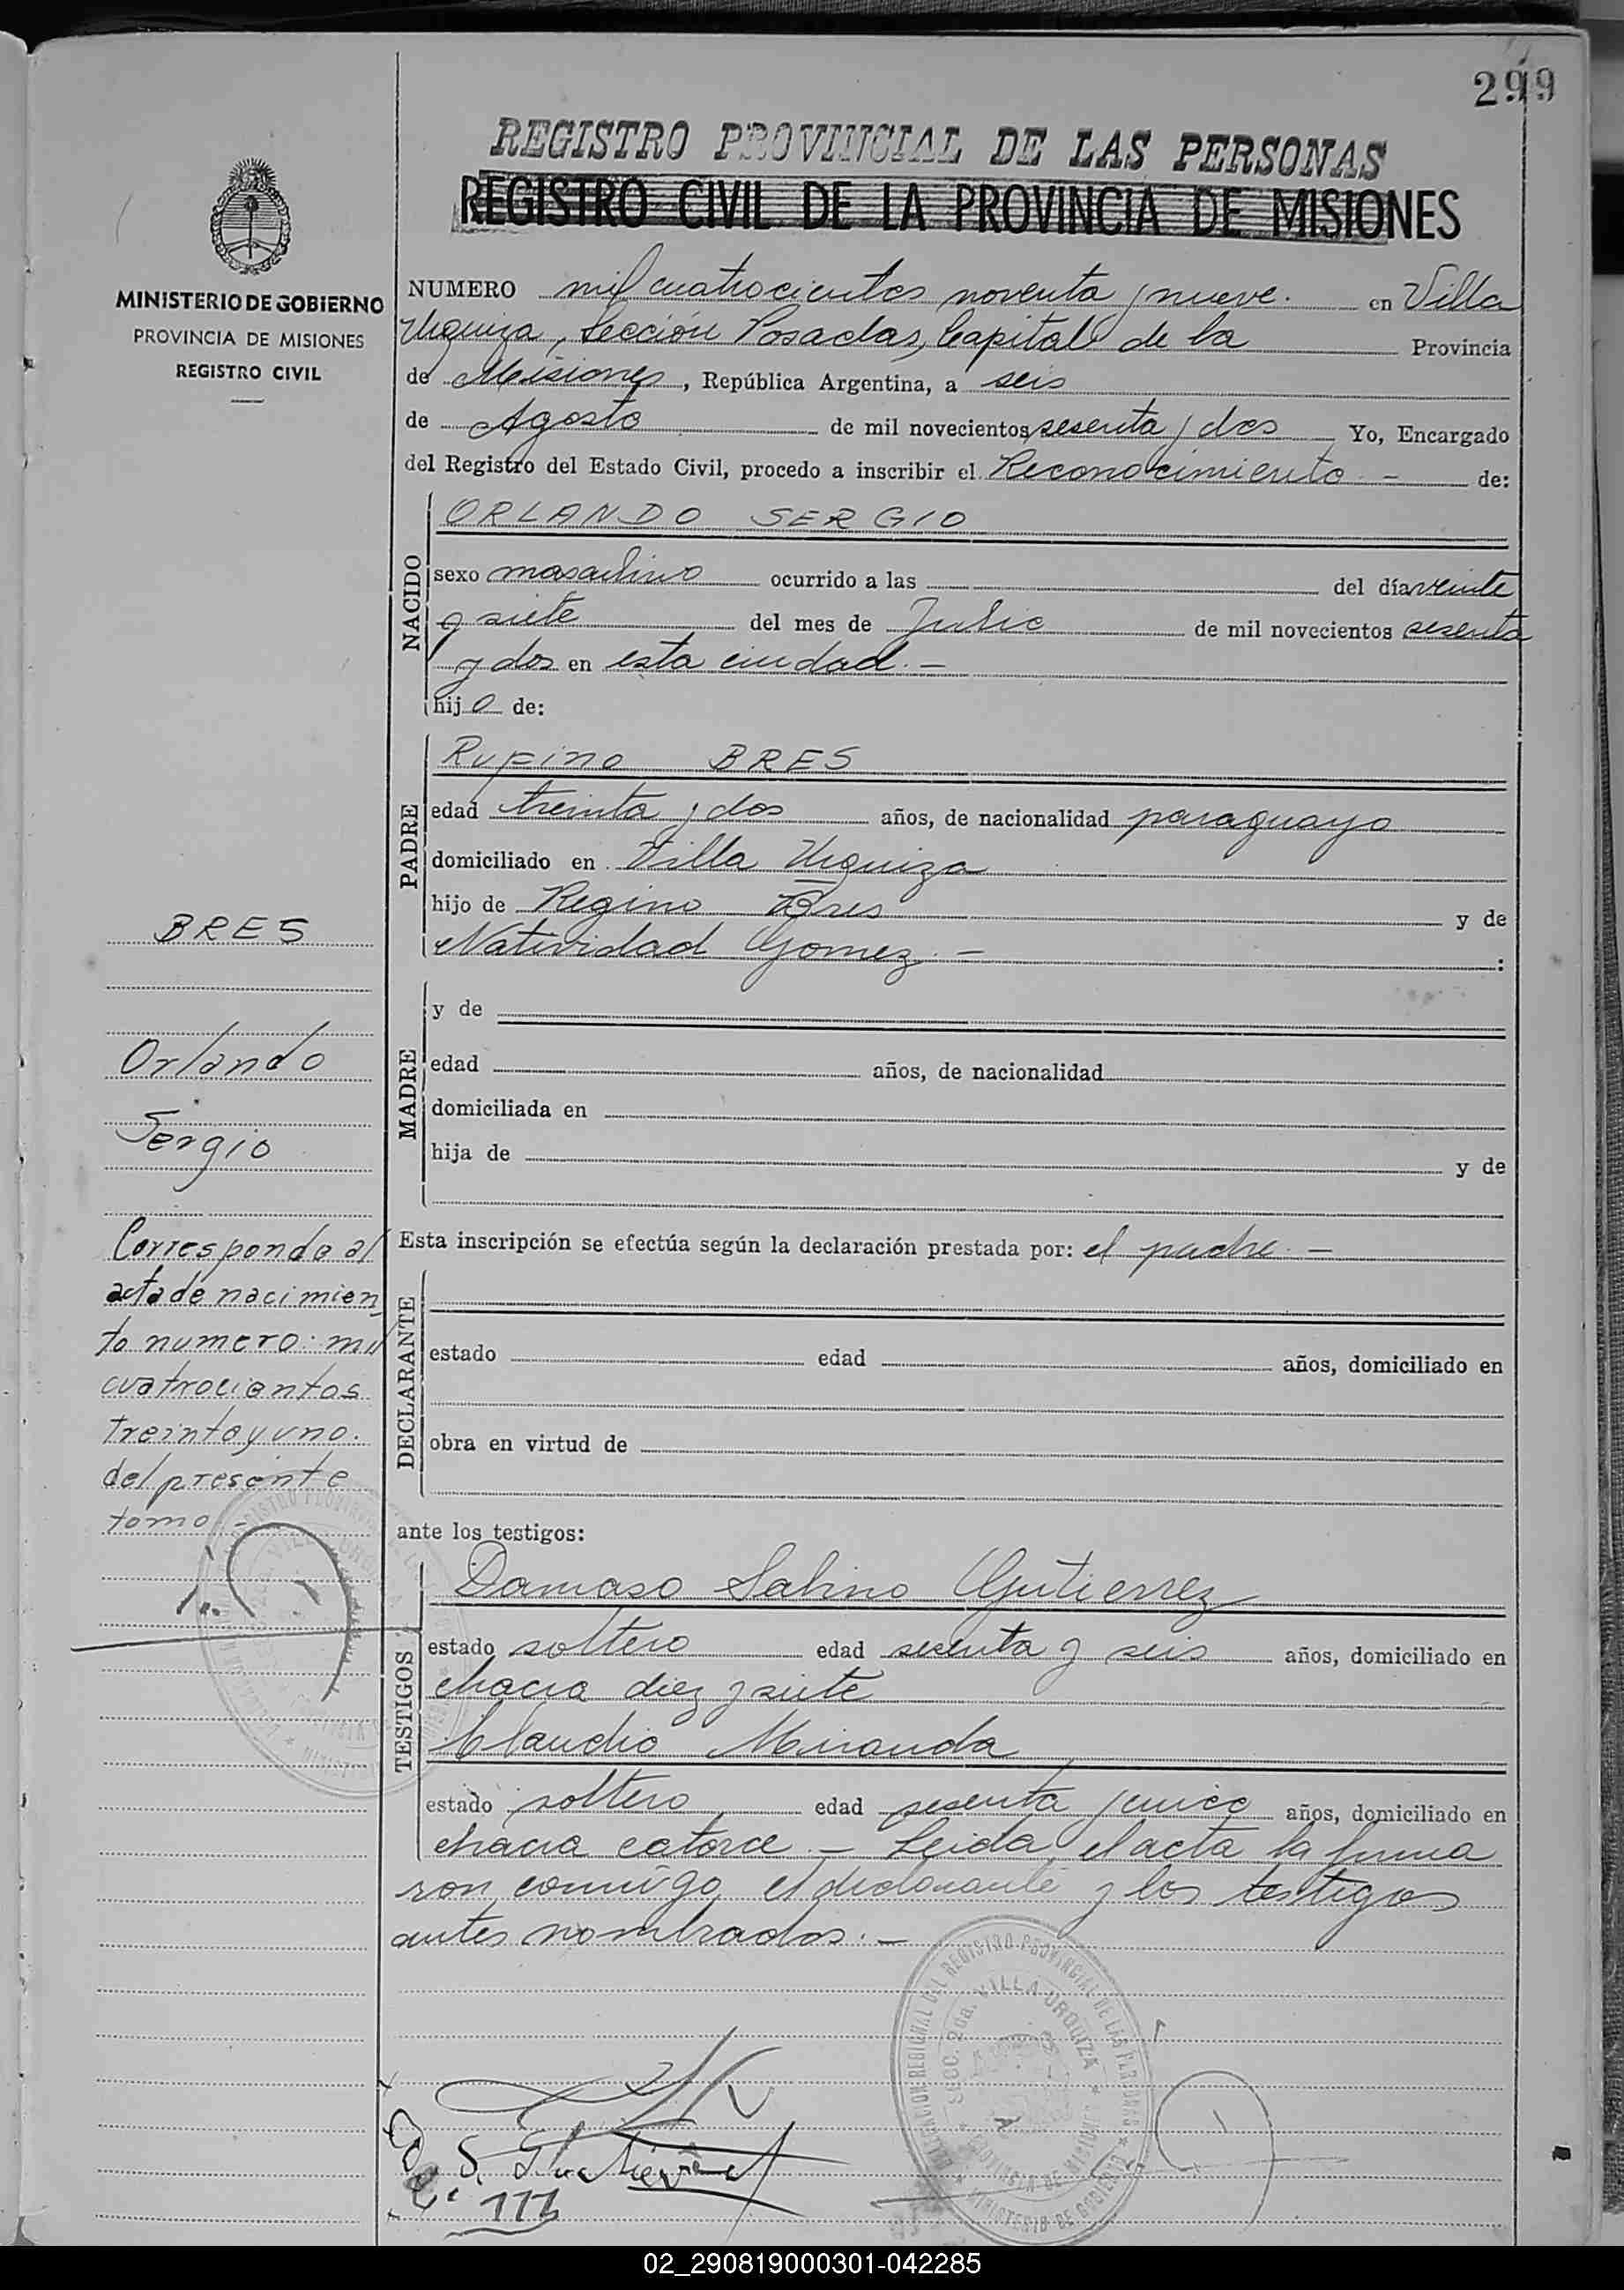 299
REGISTRO PROVINCIAL DE LAS PERSONAS
REGISTRO CIVIL DE LA PROVINCIA DE MISIONES
MINISTERIO DE GOBIERNO
PROVINCIA DE MISIONES
REGISTRO CIVIL
NUMERO mil cuatrocientos noventa y nueve. en Villa
Urquiza, Sección Posadas, Capital de la Provincia
de Misiones, República Argentina, a seis
de Agosto de mil novecientos sesenta y dos Yo, Encargado
del Registro del Estado Civil, procedo a inscribir el Reconocimiento - de:
NACIDO
ORLANDO SERGIO
sexo masculino ocurrido a las del día veinte
y siete del mes de Julio de mil novecientos sesenta
y dos en esta ciudad. -
hijo de:
PADRE
Rufino BRES
edad treinta y dos años, de nacionalidad paraguayo
domiciliado en Villa Urquiza
hijo de Regino Bres y de
Natividad Gomez. - :
MADRE
y de
edad años, de nacionalidad
domiciliada en
hija de y de
BRES
Orlando
Sergio
Corresponde al
acta de nacimien
to numero: mil
cuatrocientos
treinta y uno.
del presente
tomo -
Esta inscripción se efectúa según la declaración prestada por: el padre. -
DECLARANTE
estado edad años, domiciliado en
obra en virtud de
ante los testigos:
TESTIGOS
Damaso Sabino Gutierrez
estado soltero edad sesenta y seis años, domiciliado en
chacra diez y siete
Claudio Miranda
estado soltero edad sesenta y cinco años, domiciliado en
chacra catorce. - Leida el acta la firma
ron conmigo el declarante y los testigos
antes nombrados. -
DELEGACION REGIONAL DEL REGISTRO PROVINCIAL DE LAS PERSONAS
SECC. 2da. VILLA URQUIZA
PROVINCIA DE MISIONES
MINISTERIO DE GOBIERNO
02_290819000301-042285